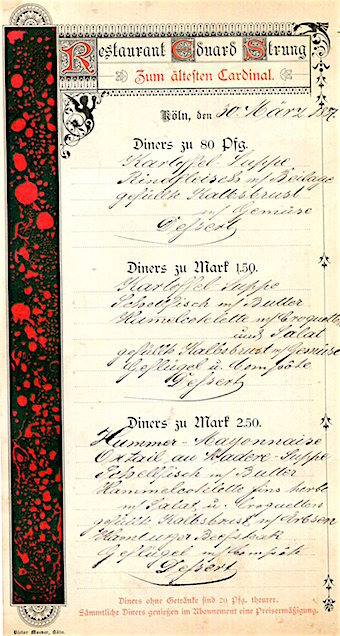 Restaurant Eduard Strung
Zum ältesten Cardinal.
Köln, den 30 März 1887
Diners zu 80 Pfg.
Kartoffel Suppe
Rindfleisch m/ Beilage
gefüllte Kalbsbrust
m/ Gemüse
Dessert
Diners zu Mark 1,50.
Kartoffel Suppe
Schellfisch m/ Butter
Hamelcotelette m/ Croquetten
und Salat
gefüllte Kalbsbrust m/ Gemüse
Geflügel u. Compote
Dessert
Diners zu Mark 2.50.
Hummer-Mayonnaise
Oxtail au Madere-Suppe
Schellfisch m/ Butter
Hammelcotelette fins herbe
m/ Salat u. Croquetten
gefüllte Kalbsbrust m/ Erbsen
Hamburger Beefsteak
Geflügel m/ Compote
Dessert
Diners ohne Getränke sind 20 Pfg. theurer.
Sämmtliche Diners genießen im Abonnement eine Preisermäßigung.
Köln.